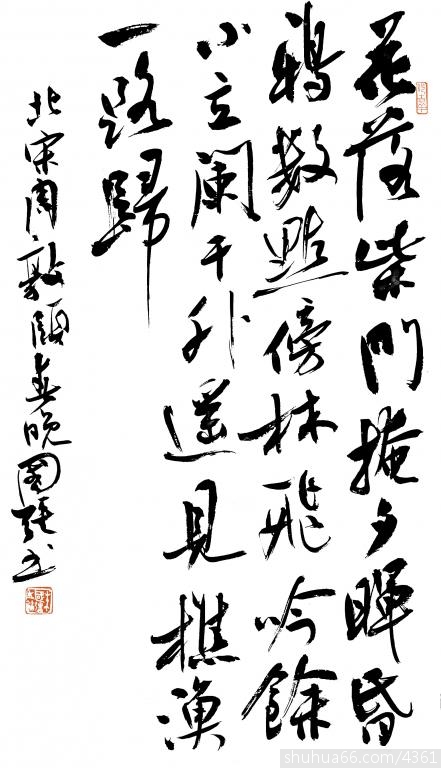 花落柴門掩夕暉昏
鴉數點傍林飛吟餘
小立闌干外遙見樵漁
一路歸
北宋周敦頤春晚书
shuhua66.com/4361